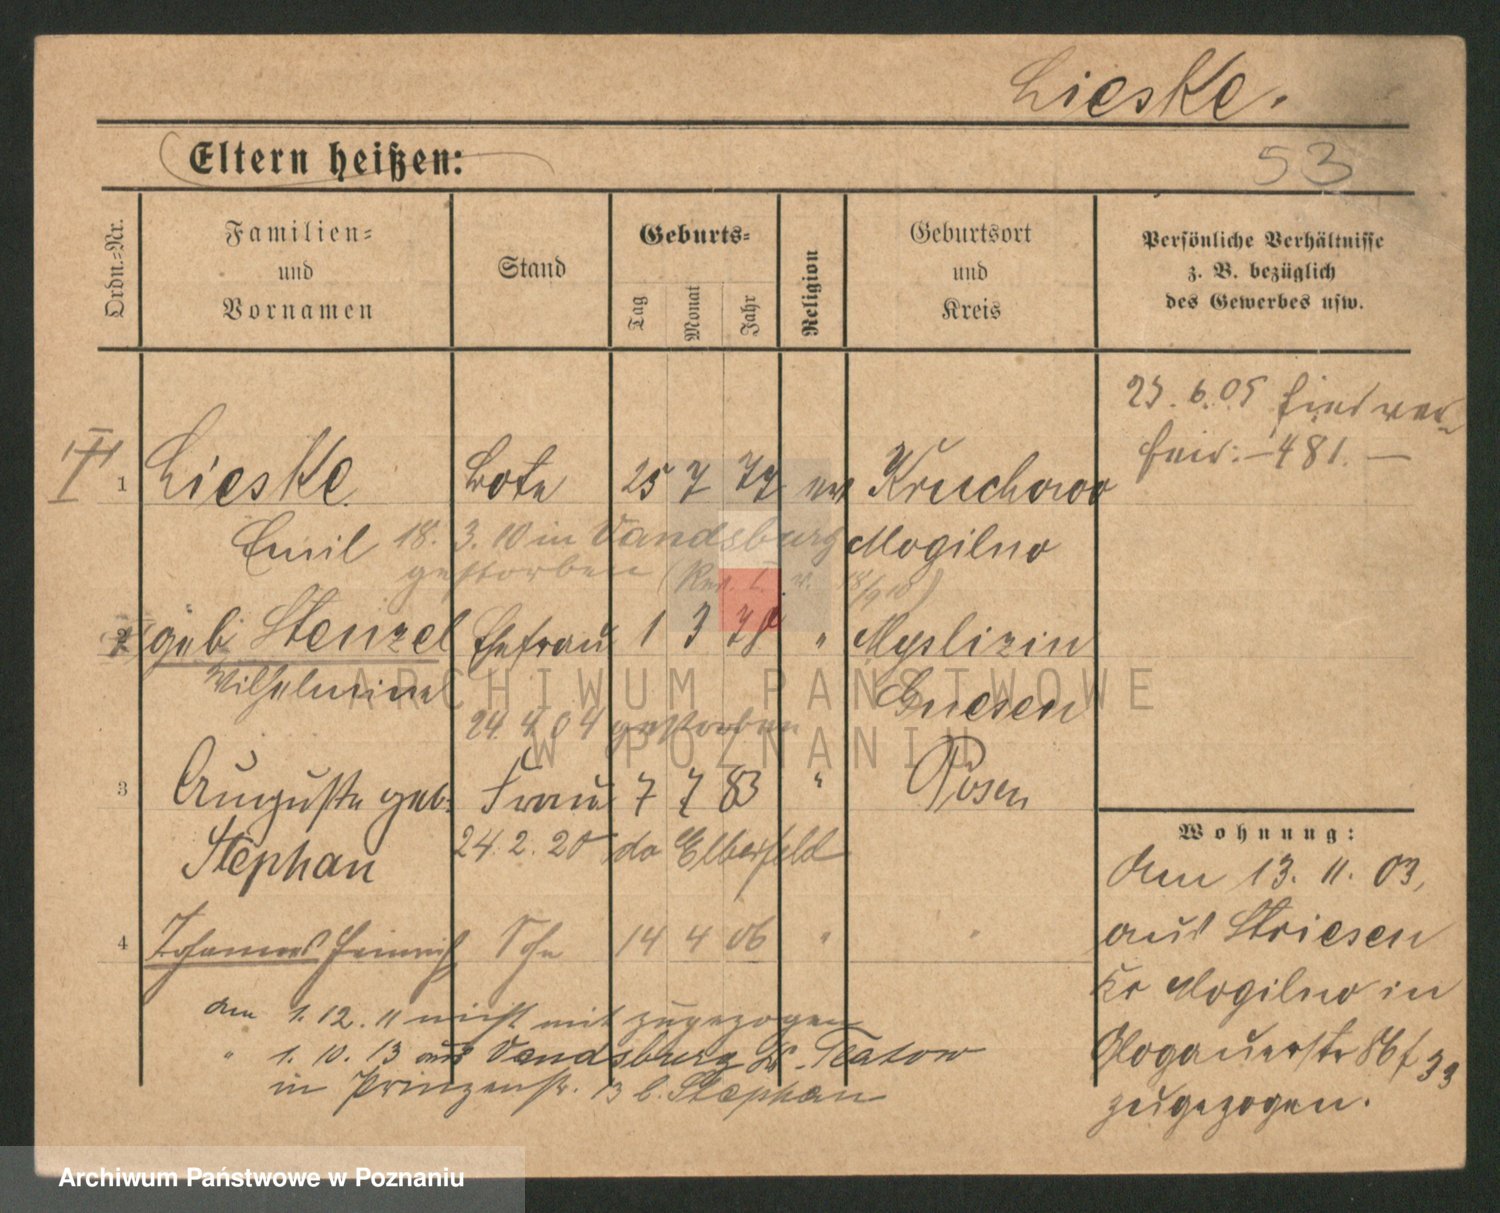 Lieske.
Eltern heißen:
53
Ordn.-Nr.
Familien-
und
Vornamen
Stand
Geburts-
Tag
Monat
Jahr
Religion
Geburtsort
und
Kreis
Persönliche Verhältnisse
z. B. bezüglich
des Gewerbes usw.
III
1 Lieske Bote 25 7 77 ev Kruchowo
Emil Mogilno
18. 3. 10 in Vandsburg
gestorben
2 geb Stenzel Ehefrau 1 3 78 " Myslizin
Wilhelmine Gnesen
24. 4 04 gestorben
3 Auguste geb. Frau 7 7 83 " Posen
Stephan 24. 2. 20 do Elberfeld
4 Johannes Heinrich Sohn 14 4 06 " "
am 1. 12. 11 nicht mit zugezogen
" 1. 10. 13 aus Vandsburg Kr. Flatow
in Prinzenstr. 13 b. Stephan
25. 6. 05
481. —
Wohnung:
Am 13. 11. 03,
aus Striesen
Kr Mogilno in
Glogauerstr 86 f 33
zugezogen.
ARCHIWUM PAŃSTWOWE
W POZNANIU
Archiwum Państwowe w Poznaniu